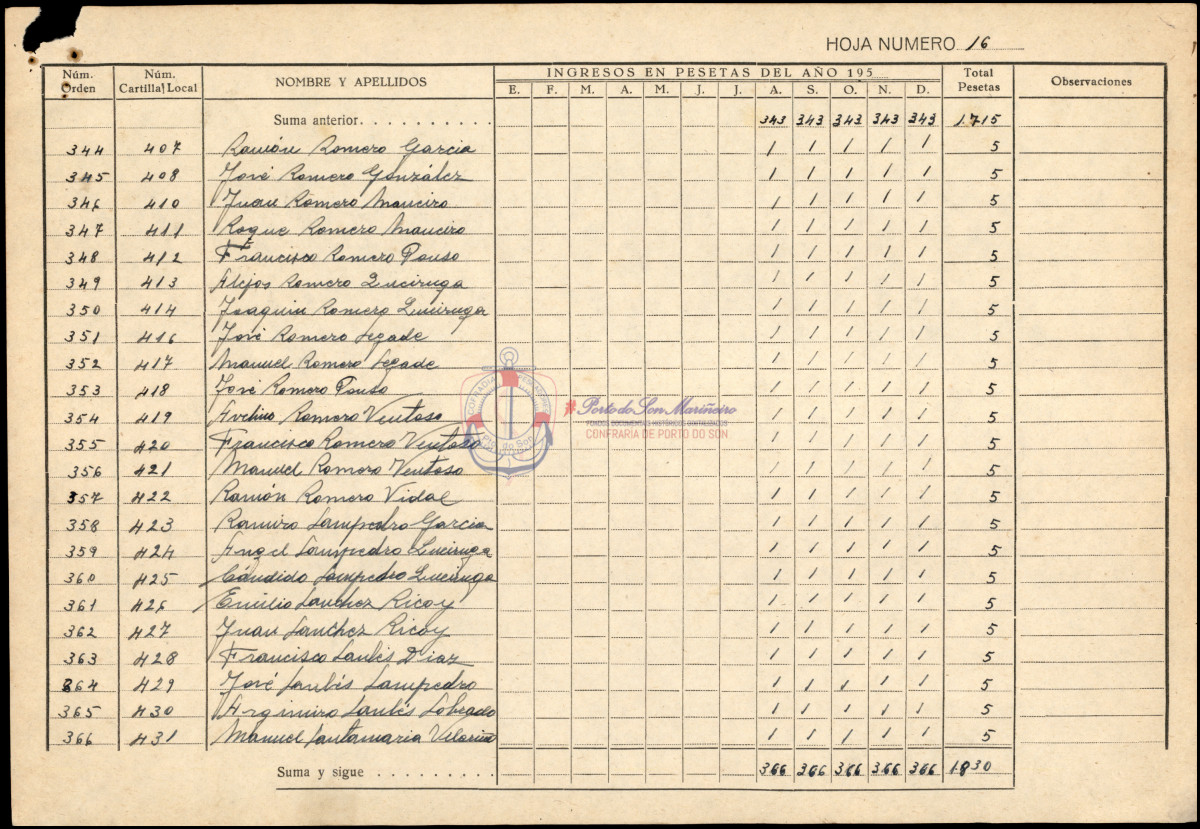 HOJA NUMERO 16
Núm. Orden Núm. Cartilla Local NOMBRE Y APELLIDOS INGRESOS EN PESETAS DEL AÑO 195 Total Pesetas Observaciones
E. F. M. A. M. J. J. A. S. O. N. D.
Suma anterior 343 343 343 343 343 1.715
344 407 Ramón Romero García 1 1 1 1 1 5
345 408 José Romero González 1 1 1 1 1 5
346 410 Juan Romero Maneiro 1 1 1 1 1 5
347 411 Roque Romero Maneiro 1 1 1 1 1 5
348 412 Francisco Romero Pouso 1 1 1 1 1 5
349 413 Alejos Romero Queiruga 1 1 1 1 1 5
350 414 Joaquin Romero Queiruga 1 1 1 1 1 5
351 416 José Romero Segade 1 1 1 1 1 5
352 417 Manuel Romero Segade 1 1 1 1 1 5
353 418 José Romero Pouso 1 1 1 1 1 5
354 419 Avelino Romero Ventoso 1 1 1 1 1 5
355 420 Francisco Romero Ventoso 1 1 1 1 1 5
356 421 Manuel Romero Ventoso 1 1 1 1 1 5
357 422 Ramón Romero Vidal 1 1 1 1 1 5
358 423 Ramiro Sampedro Garcia 1 1 1 1 1 5
359 424 Angel Sampedro Queiruga 1 1 1 1 1 5
360 425 Cándido Sampedro Queiruga 1 1 1 1 1 5
361 426 Emilio Sanchez Ricoy 1 1 1 1 1 5
362 427 Juan Sanchez Ricoy 1 1 1 1 1 5
363 428 Francisco Santés Diaz 1 1 1 1 1 5
364 429 José Santés Sampedro 1 1 1 1 1 5
365 430 Argimiro Santés Sobrado 1 1 1 1 1 5
366 431 Manuel Santamaria 1 1 1 1 1 5
Suma y sigue 366 366 366 366 366 1830
COFRADIA
Pto. do Son
Porto do Son Mariñeiro
FONDOS DOCUMENTAIS HISTÓRICOS DIXITALIZADOS
CONFRARÍA DE PORTO DO SON